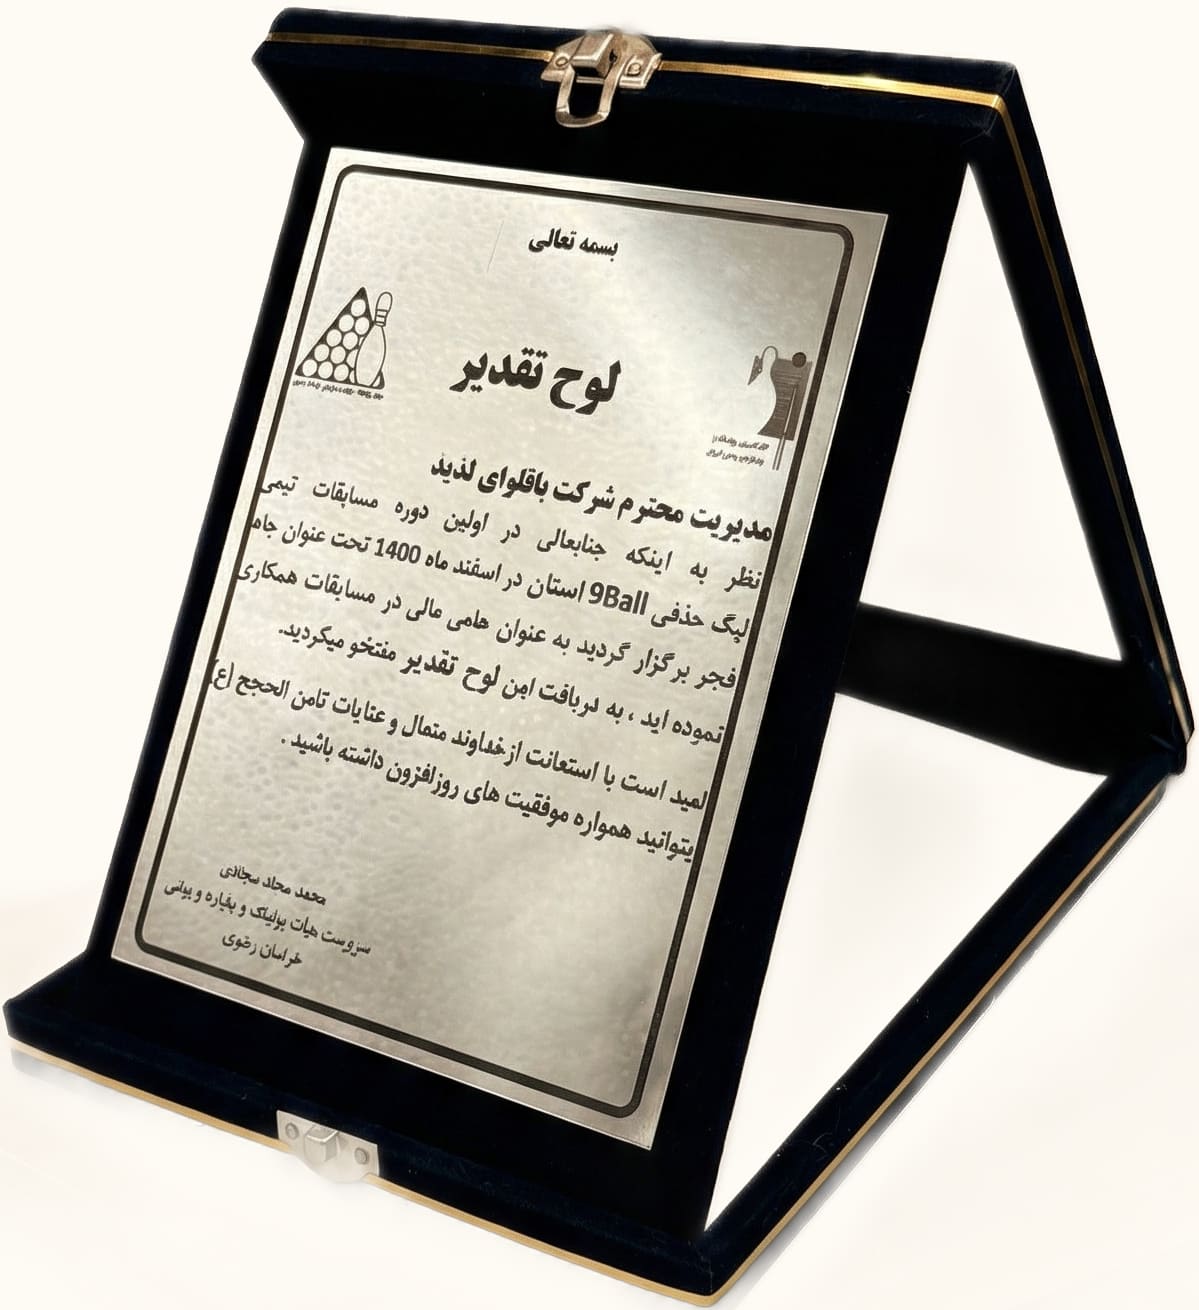 بسمه تعالی
لوح تقدیر
مدیریت محترم شرکت باقلوای لذیذ
نظر به اینکه جنابعالی در اولین دوره مسابقات تیمی
لیگ حذفی 9Ball استان در اسفند ماه 1400 تحت عنوان جام
فجر برگزار گردید به عنوان حامی مالی در مسابقات همکاری
نموده اید ، به دریافت این لوح تقدیر مفتخر میگردید.
امید است با استعانت از خداوند متعال و عنایات ثامن الحجج (ع)
بتوانید همواره موفقیت های روزافزون داشته باشید .
محمد
سرپرست هیأت بولینگ و بیلیارد و
خراسان رضوی